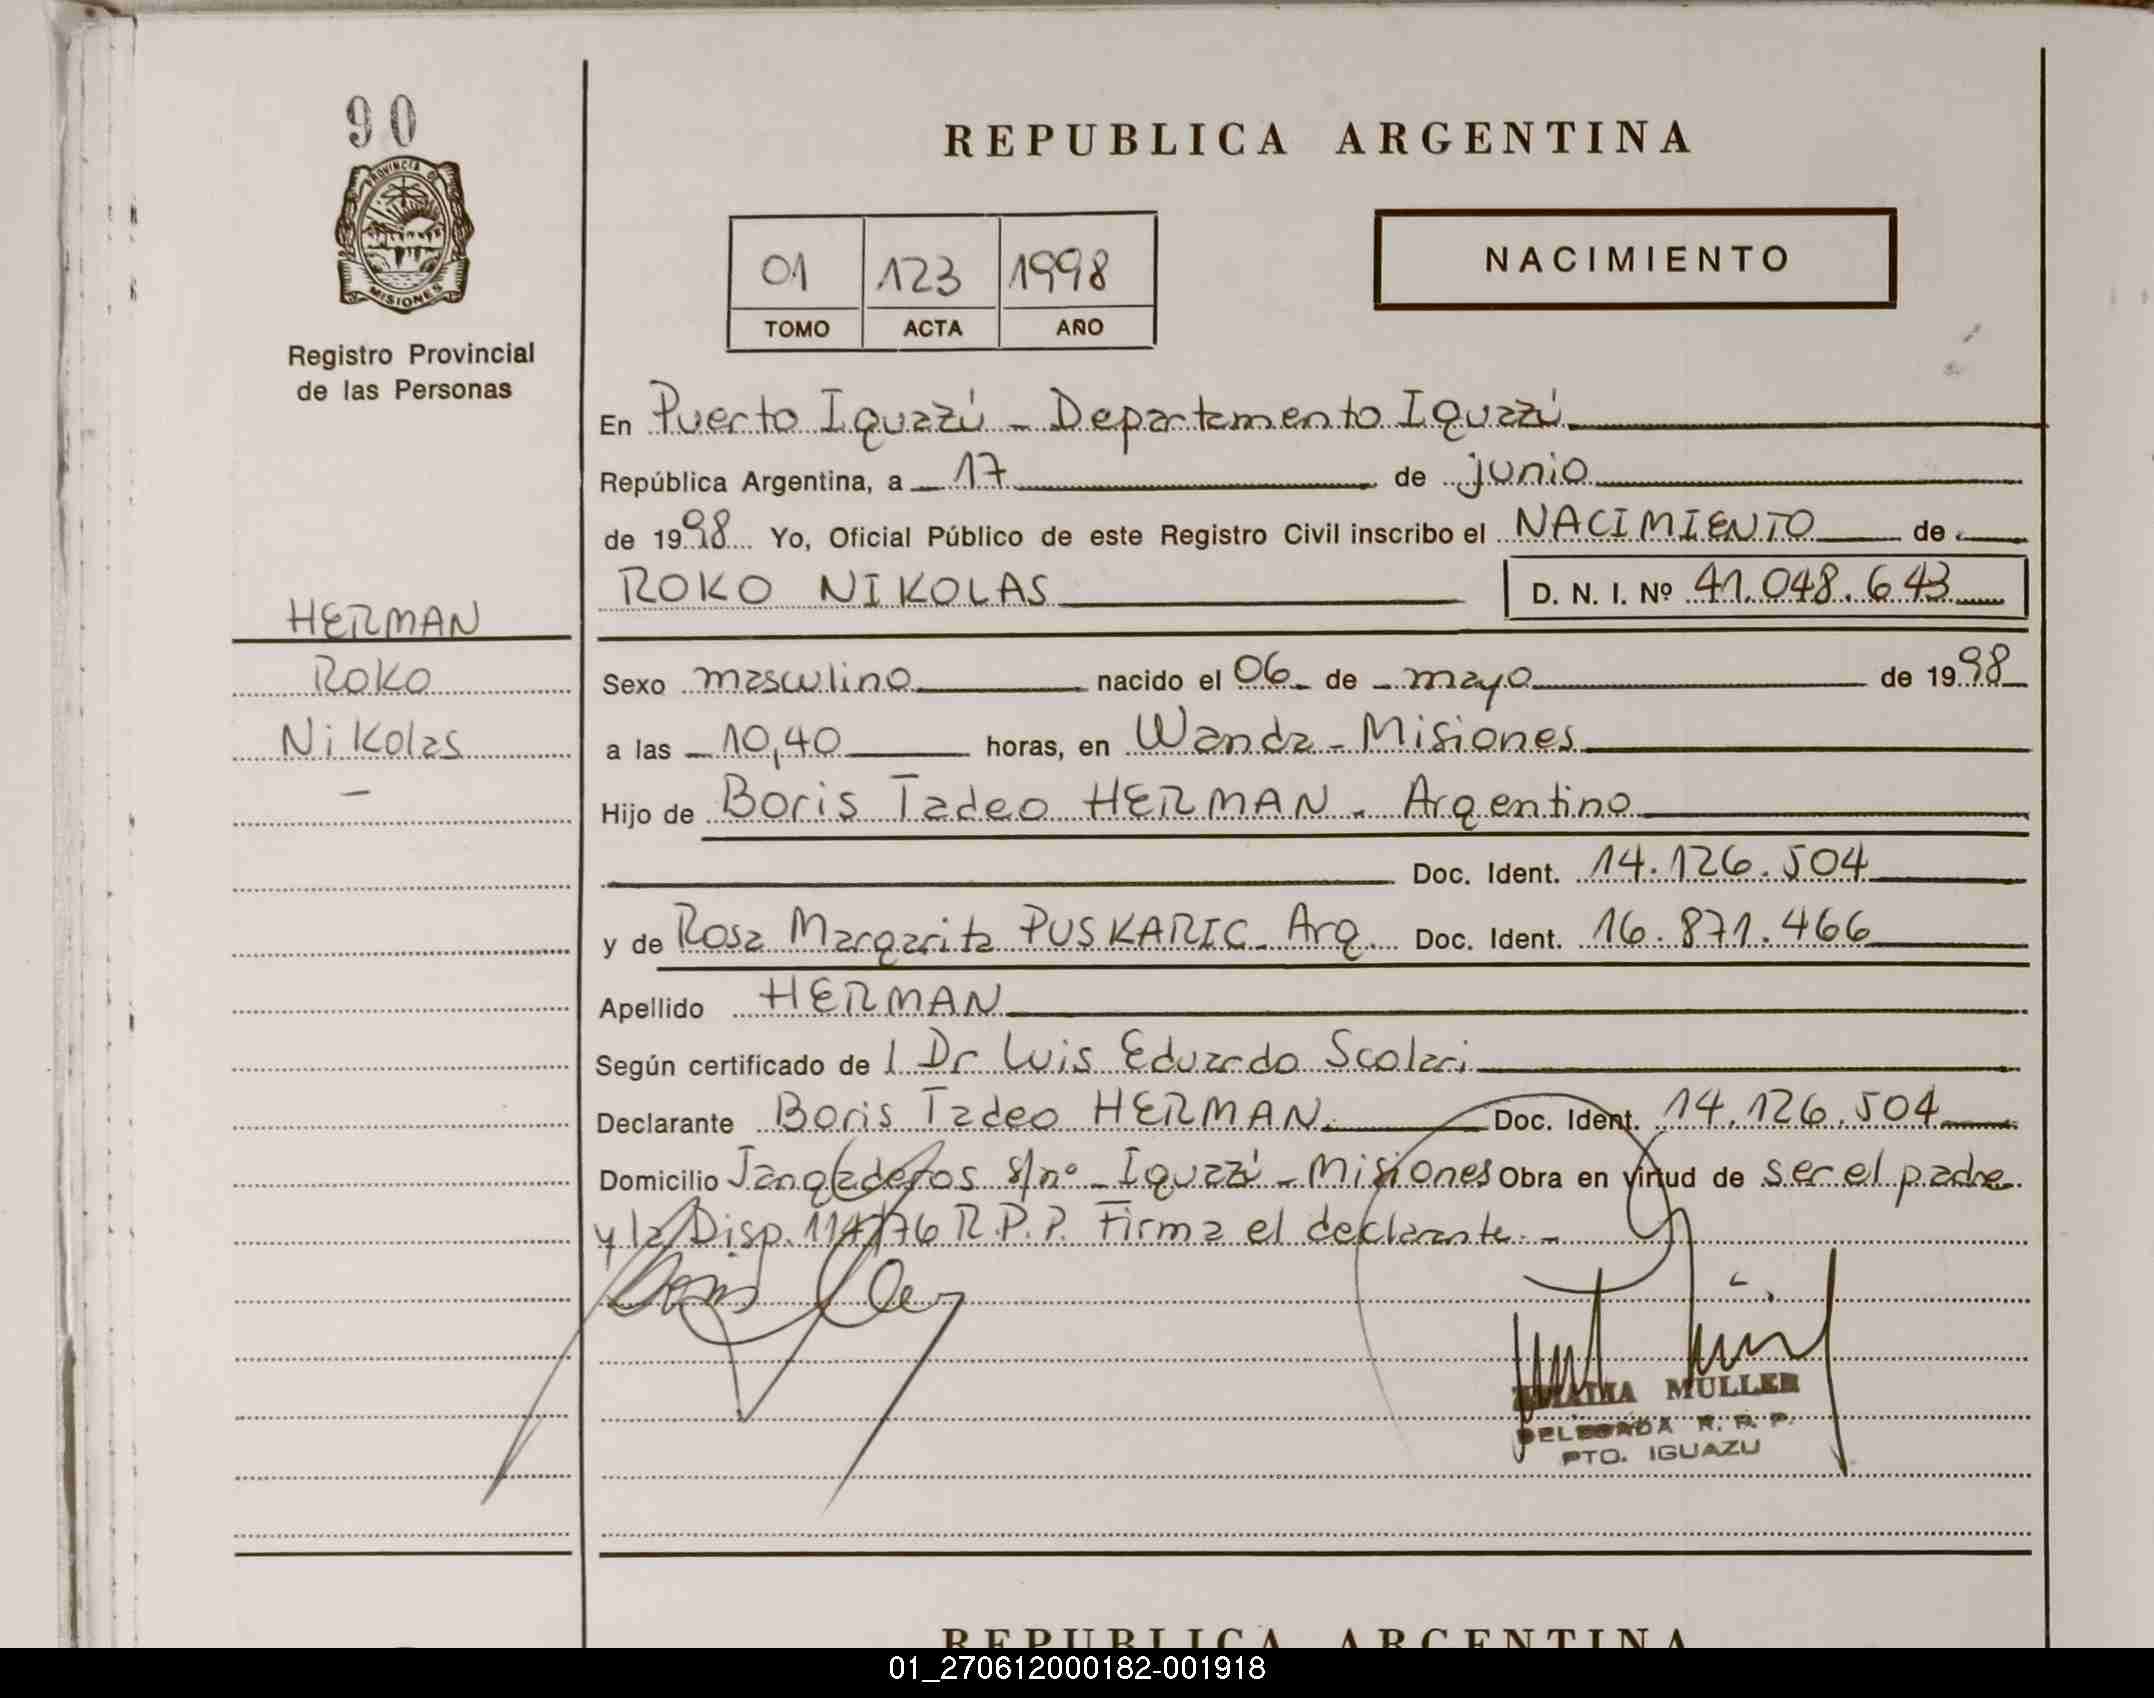 90
PROVINCIA DE
MISIONES
Registro Provincial
de las Personas
HERMAN
Roko
Nikolas
REPUBLICA ARGENTINA
01 123 1998
TOMO ACTA AÑO
NACIMIENTO
En Puerto Iguazú - Departamento Iguazú
República Argentina, a 17 de junio
de 1998 Yo, Oficial Público de este Registro Civil inscribo el NACIMIENTO de
ROKO NIKOLAS D. N. I. Nº 41.048.643
Sexo masculino nacido el 06 de mayo de 1998
a las 10,40 horas, en Wanda - Misiones
Hijo de Boris Tadeo HERMAN - Argentino
Doc. Ident. 14.126.504
y de Rosa Margarita PUSKARIC - Arg. Doc. Ident. 16.871.466
Apellido HERMAN
Según certificado de l Dr Luis Eduardo Scolari
Declarante Boris Tadeo HERMAN Doc. Ident. 14.126.504
Domicilio Jangaderos s/nº - Iguazú - Misiones Obra en virtud de ser el padre
y la Disp. 114/76 R.P.P. Firma el declarante. -
MULLER
DELEGADA R. P. P.
PTO. IGUAZU
REPUBLICA ARGENTINA
01_270612000182-001918